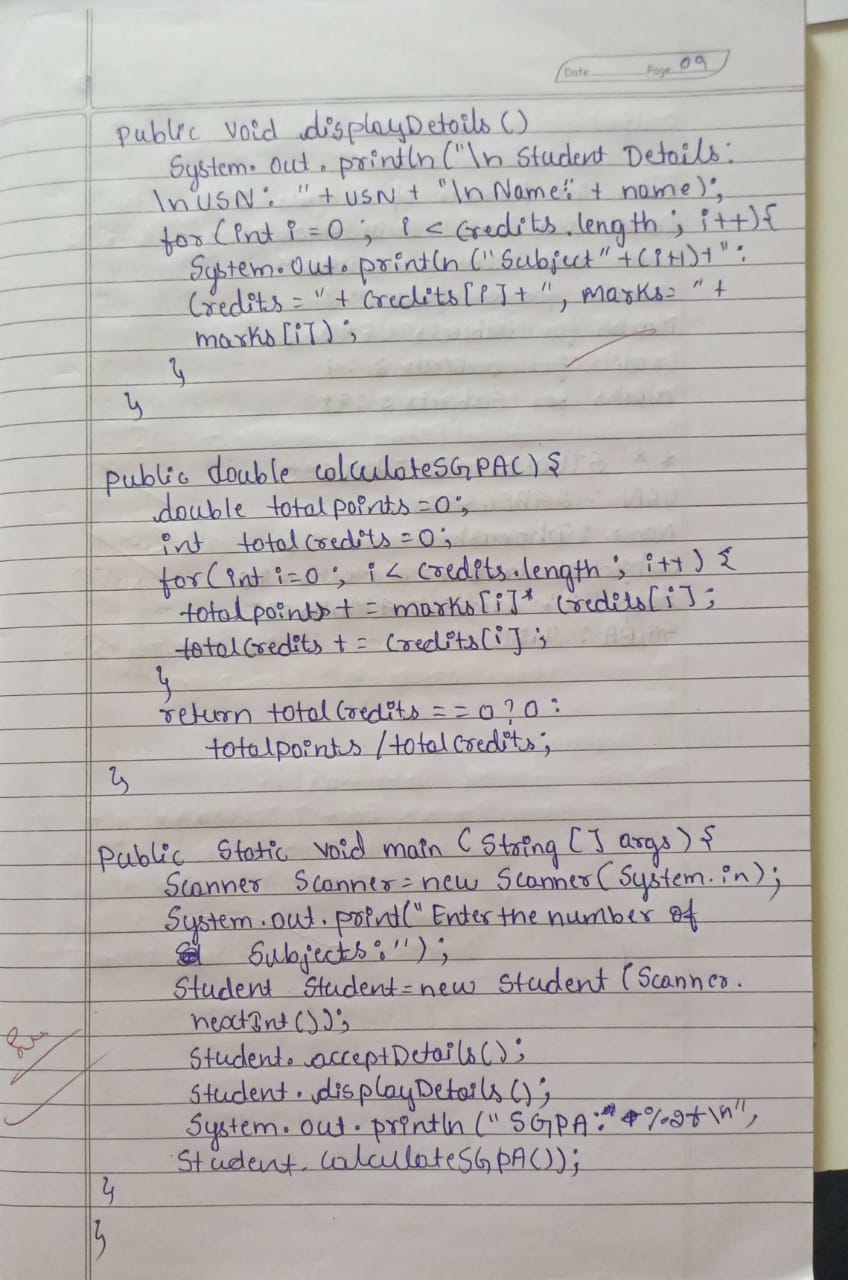 Date Page 09
public void displayDetails ()
System. out. println ("\n Student Details:
\n USN: " + USN + "\n Name:" + name);
for (int i = 0 ; i < credits.length ; i++) {
System. out. println ("Subject" + (i+1) + ":
Credits = " + credits[i] + ", marks= " +
marks [i]);
}
}
public double calculateSGPA() {
double totalpoints = 0;
int totalCredits = 0;
for (int i=0 ; i < credits.length ; i++) {
totalpoints += marks [i] * credits[i];
totalCredits += credits[i];
}
return totalCredits == 0 ? 0 :
totalpoints / totalCredits;
}
public static void main (String [] args) {
Scanner Scanner = new Scanner (System.in);
System. out. print(" Enter the number of
Subjects:");
Student Student = new Student (Scanner.
nextInt ());
Student. acceptDetails();
Student. displayDetails ();
System. out. println (" SGPA: %.2f \n",
Student. calculateSGPA());
}
}